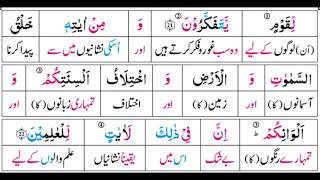 لِّقَوْمٍ يَّتَفَكَّرُوْنَ ﴿21﴾ وَ مِنْ اٰيٰتِهٖ خَلْقُ
(اُن) لوگوں کے لیے وہ سب غور و فکر کرتے ہیں اور اسکی نشانیوں میں سے پیدا کرنا
السَّمٰوٰتِ وَ الْاَرْضِ وَ اخْتِلَافُ اَلْسِنَتِكُمْ وَ
آسمانوں (کا) اور زمین (کا) اور اختلاف تمہاری زبانوں (کا) اور
اَلْوَانِكُمْ ؕ اِنَّ فِيْ ذٰلِكَ لَاٰيٰتٍ لِّلْعٰلِمِيْنَ ﴿22﴾
تمہارے رنگوں (کا) بے شک اس میں یقیناً نشانیاں علم والوں کے لیے